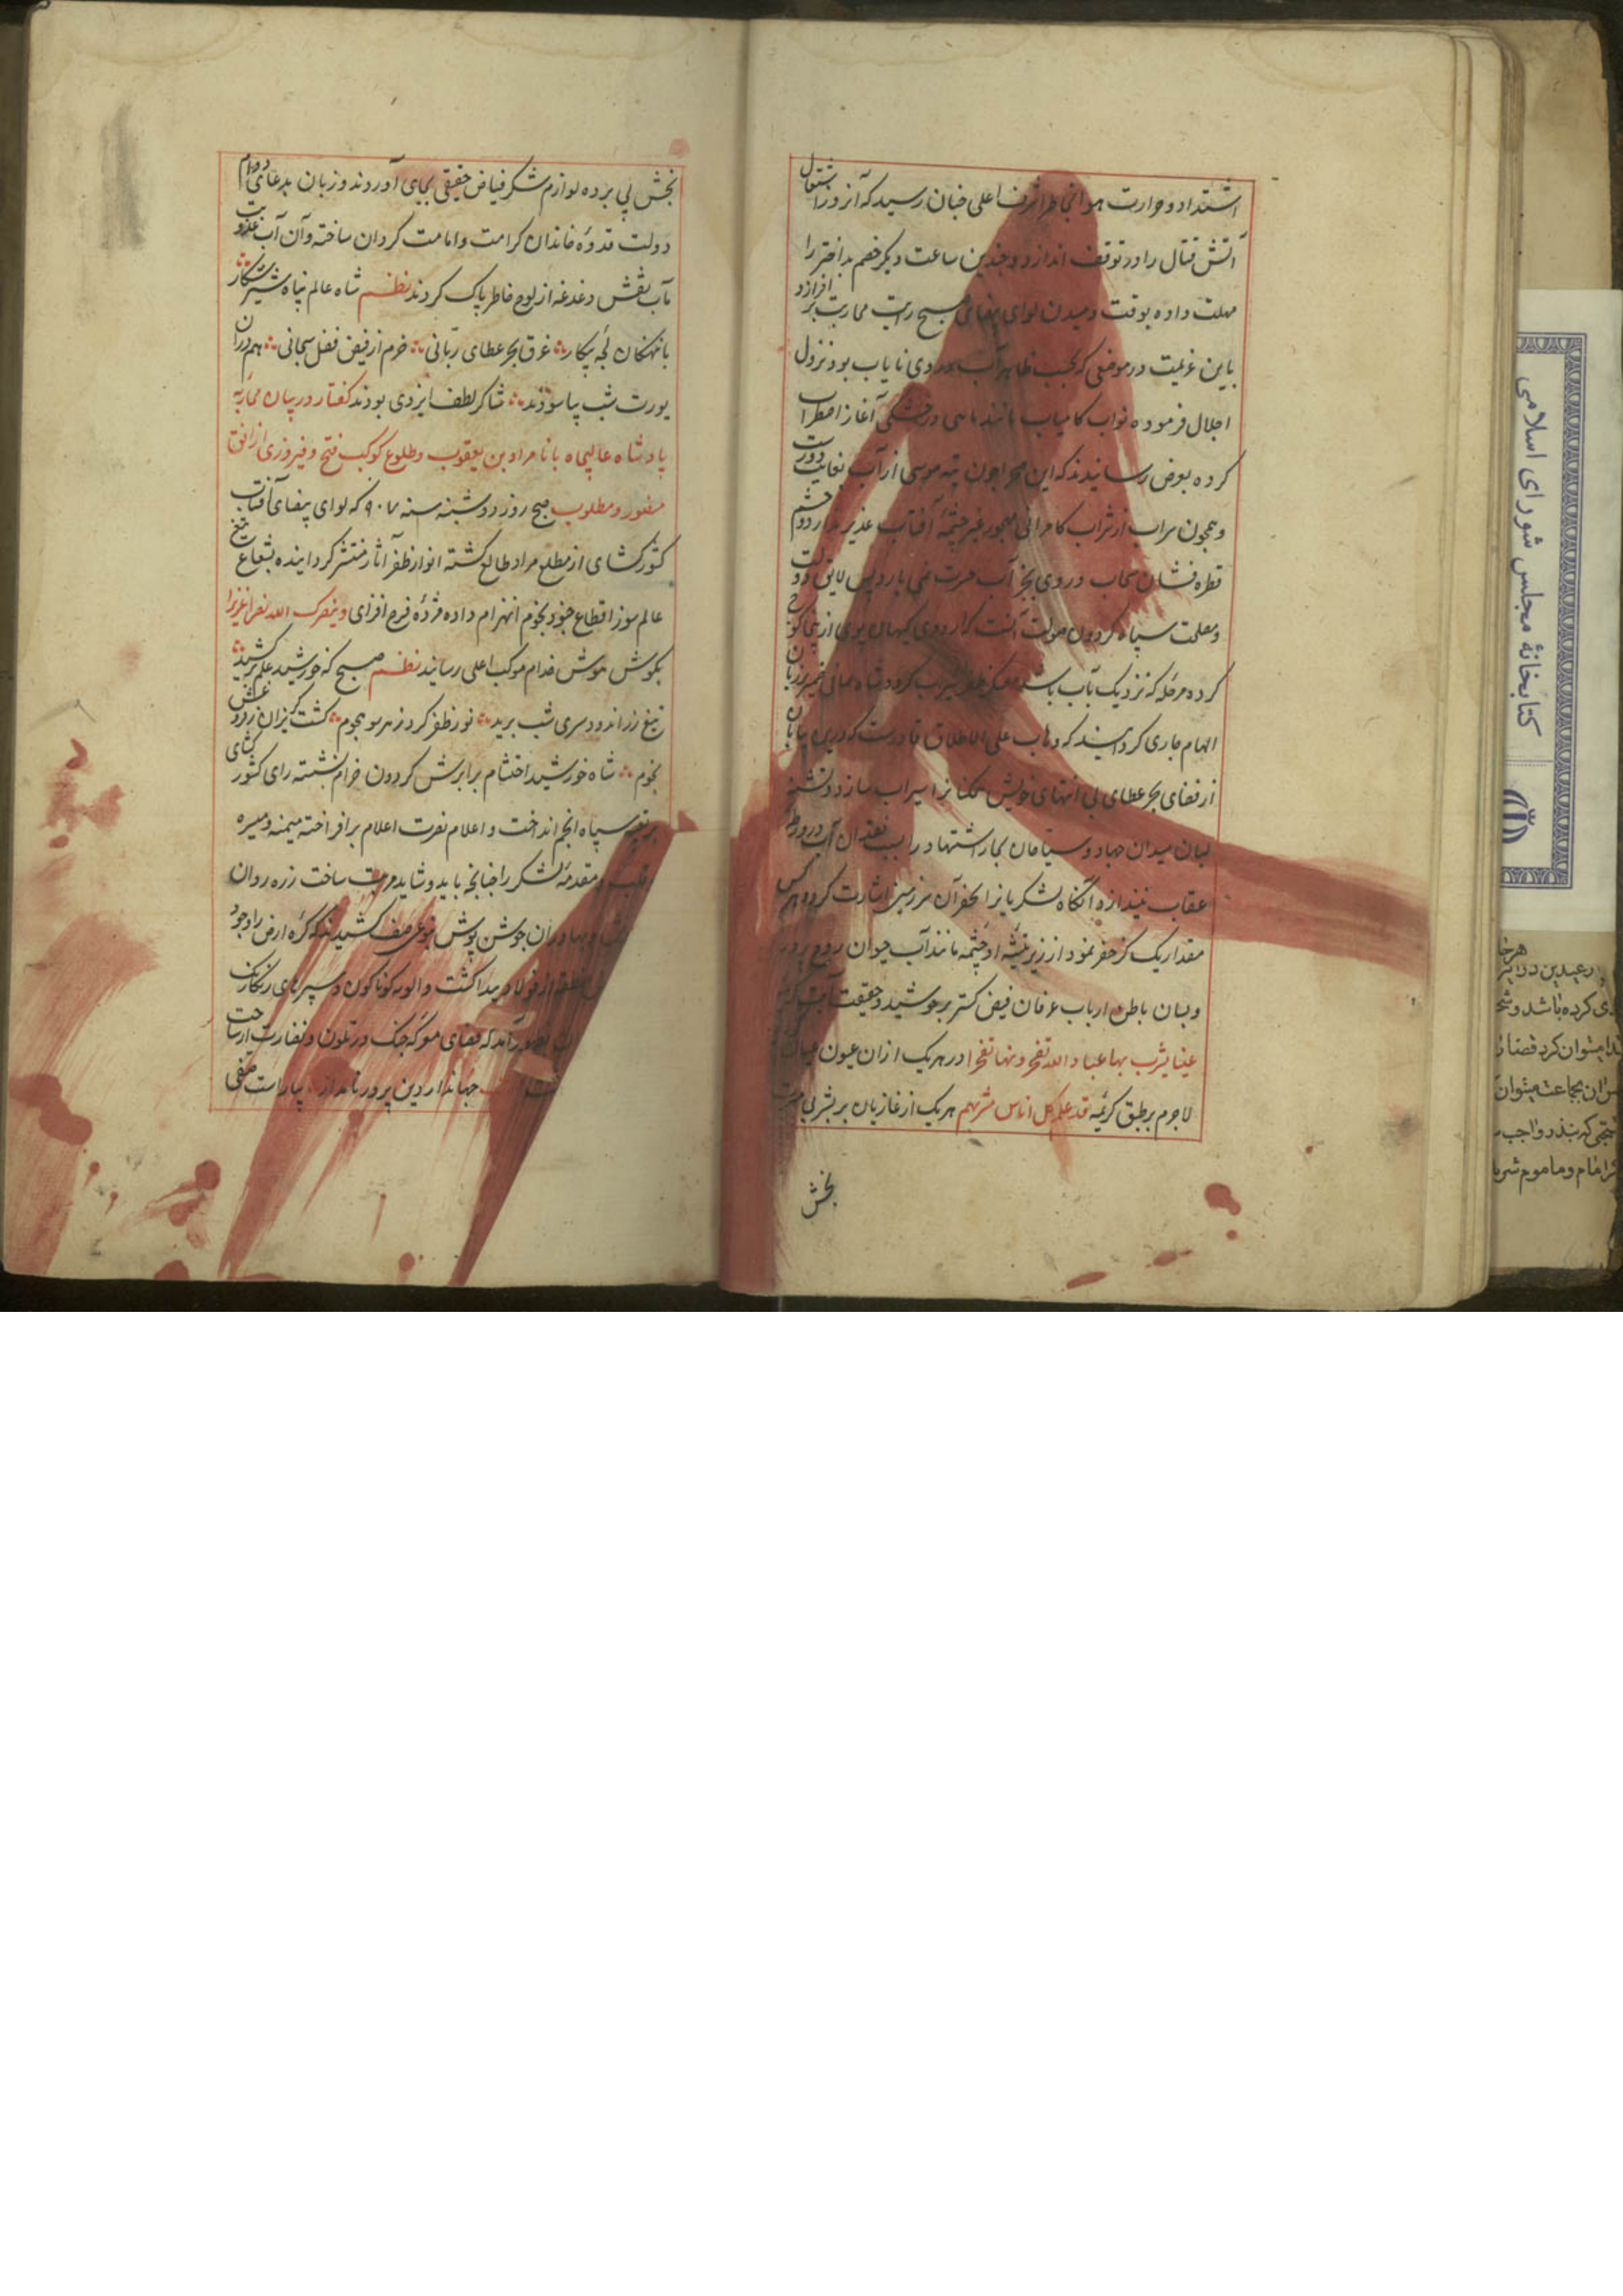 اشتداد و حرارت هوا بخاطر اشرف اعلی چنان رسید که آنروز اشتعال
آتش قتال را در توقف اندازد و چندین ساعت دیگر خصم بد اختر را
مهلت داده بوقت دمیدن لوای بیضای صبح رایت محاربت بر افرازد
باین عزیمت در موضعی که بحسب ظاهر آب در وی نایاب بود نزول
اجلال فرموده نواب کامیاب مانند ماهی در خشکی آغاز اضطراب
کرده بعرض رسانیدند که این صحرا چون تیه موسی از آب بغایت دورست
و همچون سراب از شراب کامرانی مهجور غیر چشمه آفتاب غدیر ندارد و چشم
قطره فشان سحاب در وی بجز آب حسرت نمی بارد پس لایق دولت
و مصلحت سپاه گردون صولت آنست که اردوی کیهان پوی ازینجا کوچ
کرده مرحله که نزدیک بآب باشد شاه ضمیر زبان
الهام جاری گردانیدند که وهاب علی الاطلاق قادرست که درین بیابان
از فضای بحر عطای بی انتهای خویش ممکنانرا سیراب سازد و تشنه
لبان میدان جهاد و سیاحان بحار اشتهاد را بسبب فقدان آب در ورطه
عقاب نیندازد آنگاه لشکریانرا بحفر آن سرزمین اشارت کرد و هر کس
مقدار یک گز حفر نمود از زیر تیشه او چشمه مانند آب حیوان روح پرور
و بسان باطن ارباب عرفان فیض گستر برجوشید و حقیقت
عینا یشرب بها عباد الله تفجرونها تفجیرا در هر یک ازان عیون عیان
لاجرم بر طبق کریمه قد علم کل اناس مشربهم هر یک از غازیان بر مشربی
بخش
بخش پی برده لوازم شکر فیاض حقیقی بجای آوردند و زبان بدعای دوام
دولت قدوه خاندان کرامت و امامت گردان ساخته و آن آب عذوبت
مآب نقش دغدغه از لوح خاطر پاک کردند نظم شاه عالم پناه شیر شکار
با نهنگان لجه پیکار غرق بحر عطای ربانی خرم از فیض فضل سبحانی هم دران
یورت شب بیاسودند شاکر لطف ایزدی بودند گفتار در بیان محاربه
پادشاه عالیجاه با نامراد بن یعقوب و طلوع کوکب فتح و فیروزی از افق
مقدور و مطلوب صبح روز دوشنبه سنه ۹۰۷ که لوای بیضای آفتاب
کشور گشای از مطلع مراد طالع گشته انوار ظفر آثار منتشر گردانیده بشعاع تیغ
عالم سوز اقطاع جنود نجوم انهزام داده مژده فرح افزای و ینصرک الله نصرا عزیزا
بگوش هوش خدام موکب اعلی رسانید نظم صبح که خورشید علم برکشید
تیغ زر اندود سری شب برید نور ظفر کرد ز هر سو هجوم گشت گریزان ز درفش
نجوم شاه خورشید احتشام بر ابرش گردون خرام نشسته رای کشور گشای
بر تعبیه سپاه انجم انداخت و اعلام نصرت اعلام برافراخته میمنه و میسره
قلب و مقدمه لشکر را چنانچه باید و شاید مرتب ساخت زره روان
و بهادران جوشن پوش بنوعی صف کشیدند که کره ارض را وجود
از فولاد پیدا گشت و الویه گوناگون و سپرهای رنگارنگ
بظهور آمد که فضای معرکه جنگ در تلون و نضارت
جهاندار دین پرور نامدار بیاراست صفی
کتابخانهٔ مجلس شورای اسلامی